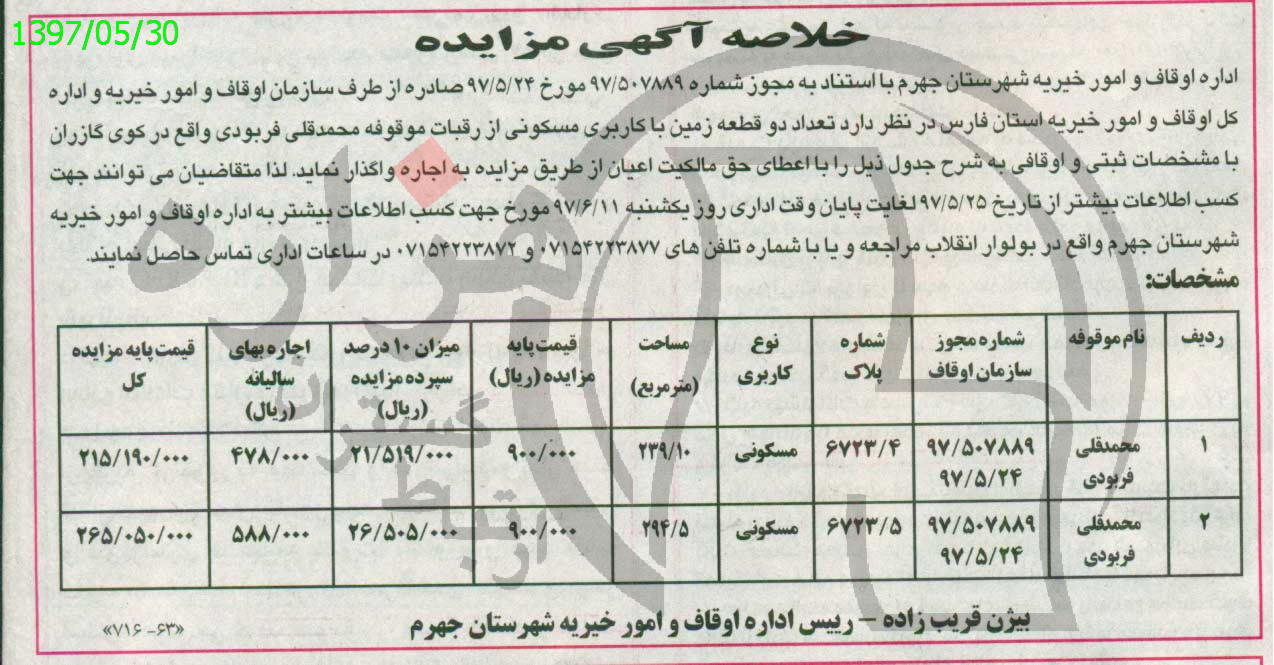 1397/05/30
خلاصه آگهی مزایده
اداره اوقاف و امور خیریه شهرستان جهرم با استناد به مجوز شماره ۹۷/۵۰۷۸۸۹ مورخ ۹۷/۵/۲۴ صادره از طرف سازمان اوقاف و امور خیریه و اداره
کل اوقاف و امور خیریه استان فارس در نظر دارد تعداد دو قطعه زمین با کاربری مسکونی از رقبات موقوفه محمدقلی فربودی واقع در کوی گازران
با مشخصات ثبتی و اوقافی به شرح جدول ذیل را با اعطای حق مالکیت اعیان از طریق مزایده به اجاره واگذار نماید. لذا متقاضیان می توانند جهت
کسب اطلاعات بیشتر از تاریخ ۹۷/۵/۲۵ لغایت پایان وقت اداری روز یکشنبه ۹۷/۶/۱۱ مورخ جهت کسب اطلاعات بیشتر به اداره اوقاف و امور خیریه
شهرستان جهرم واقع در بولوار انقلاب مراجعه و یا با شماره تلفن های ۰۷۱۵۴۲۲۳۸۷۷ و ۰۷۱۵۴۲۲۳۸۷۲ در ساعات اداری تماس حاصل نمایند.
مشخصات:
ردیف نام موقوفه شماره مجوز سازمان اوقاف شماره پلاک نوع کاربری مساحت (مترمربع) قیمت پایه مزایده (ریال) میزان ۱۰ درصد سپرده مزایده (ریال) اجاره بهای سالیانه (ریال) قیمت پایه مزایده کل
۱ محمدقلی فربودی ۹۷/۵۰۷۸۸۹ ۹۷/۵/۲۴ ۶۷۲۳/۴ مسکونی ۲۳۹/۱۰ ۹۰۰/۰۰۰ ۲۱/۵۱۹/۰۰۰ ۴۷۸/۰۰۰ ۲۱۵/۱۹۰/۰۰۰
۲ محمدقلی فربودی ۹۷/۵۰۷۸۸۹ ۹۷/۵/۲۴ ۶۷۲۳/۵ مسکونی ۲۹۴/۵ ۹۰۰/۰۰۰ ۲۶/۵۰۵/۰۰۰ ۵۸۸/۰۰۰ ۲۶۵/۰۵۰/۰۰۰
بیژن قریب زاده – رییس اداره اوقاف و امور خیریه شهرستان جهرم
«۶۳- ۷۱۶»
هزاره
گستران
ارتباط